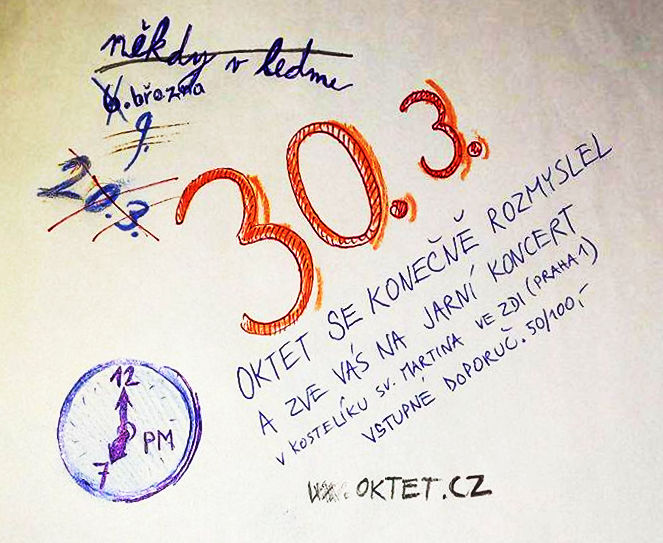 někdy v lednu
6. března
9.
20.3.
30.3.
OKTET SE KONEČNĚ ROZMYSLEL
A ZVE VÁS NA JARNÍ KONCERT
V KOSTELÍKU SV. MARTINA VE ZDI (PRAHA 1)
VSTUPNÉ DOPORUČ. 50/100,-
12
PM
7
OKTET.CZ